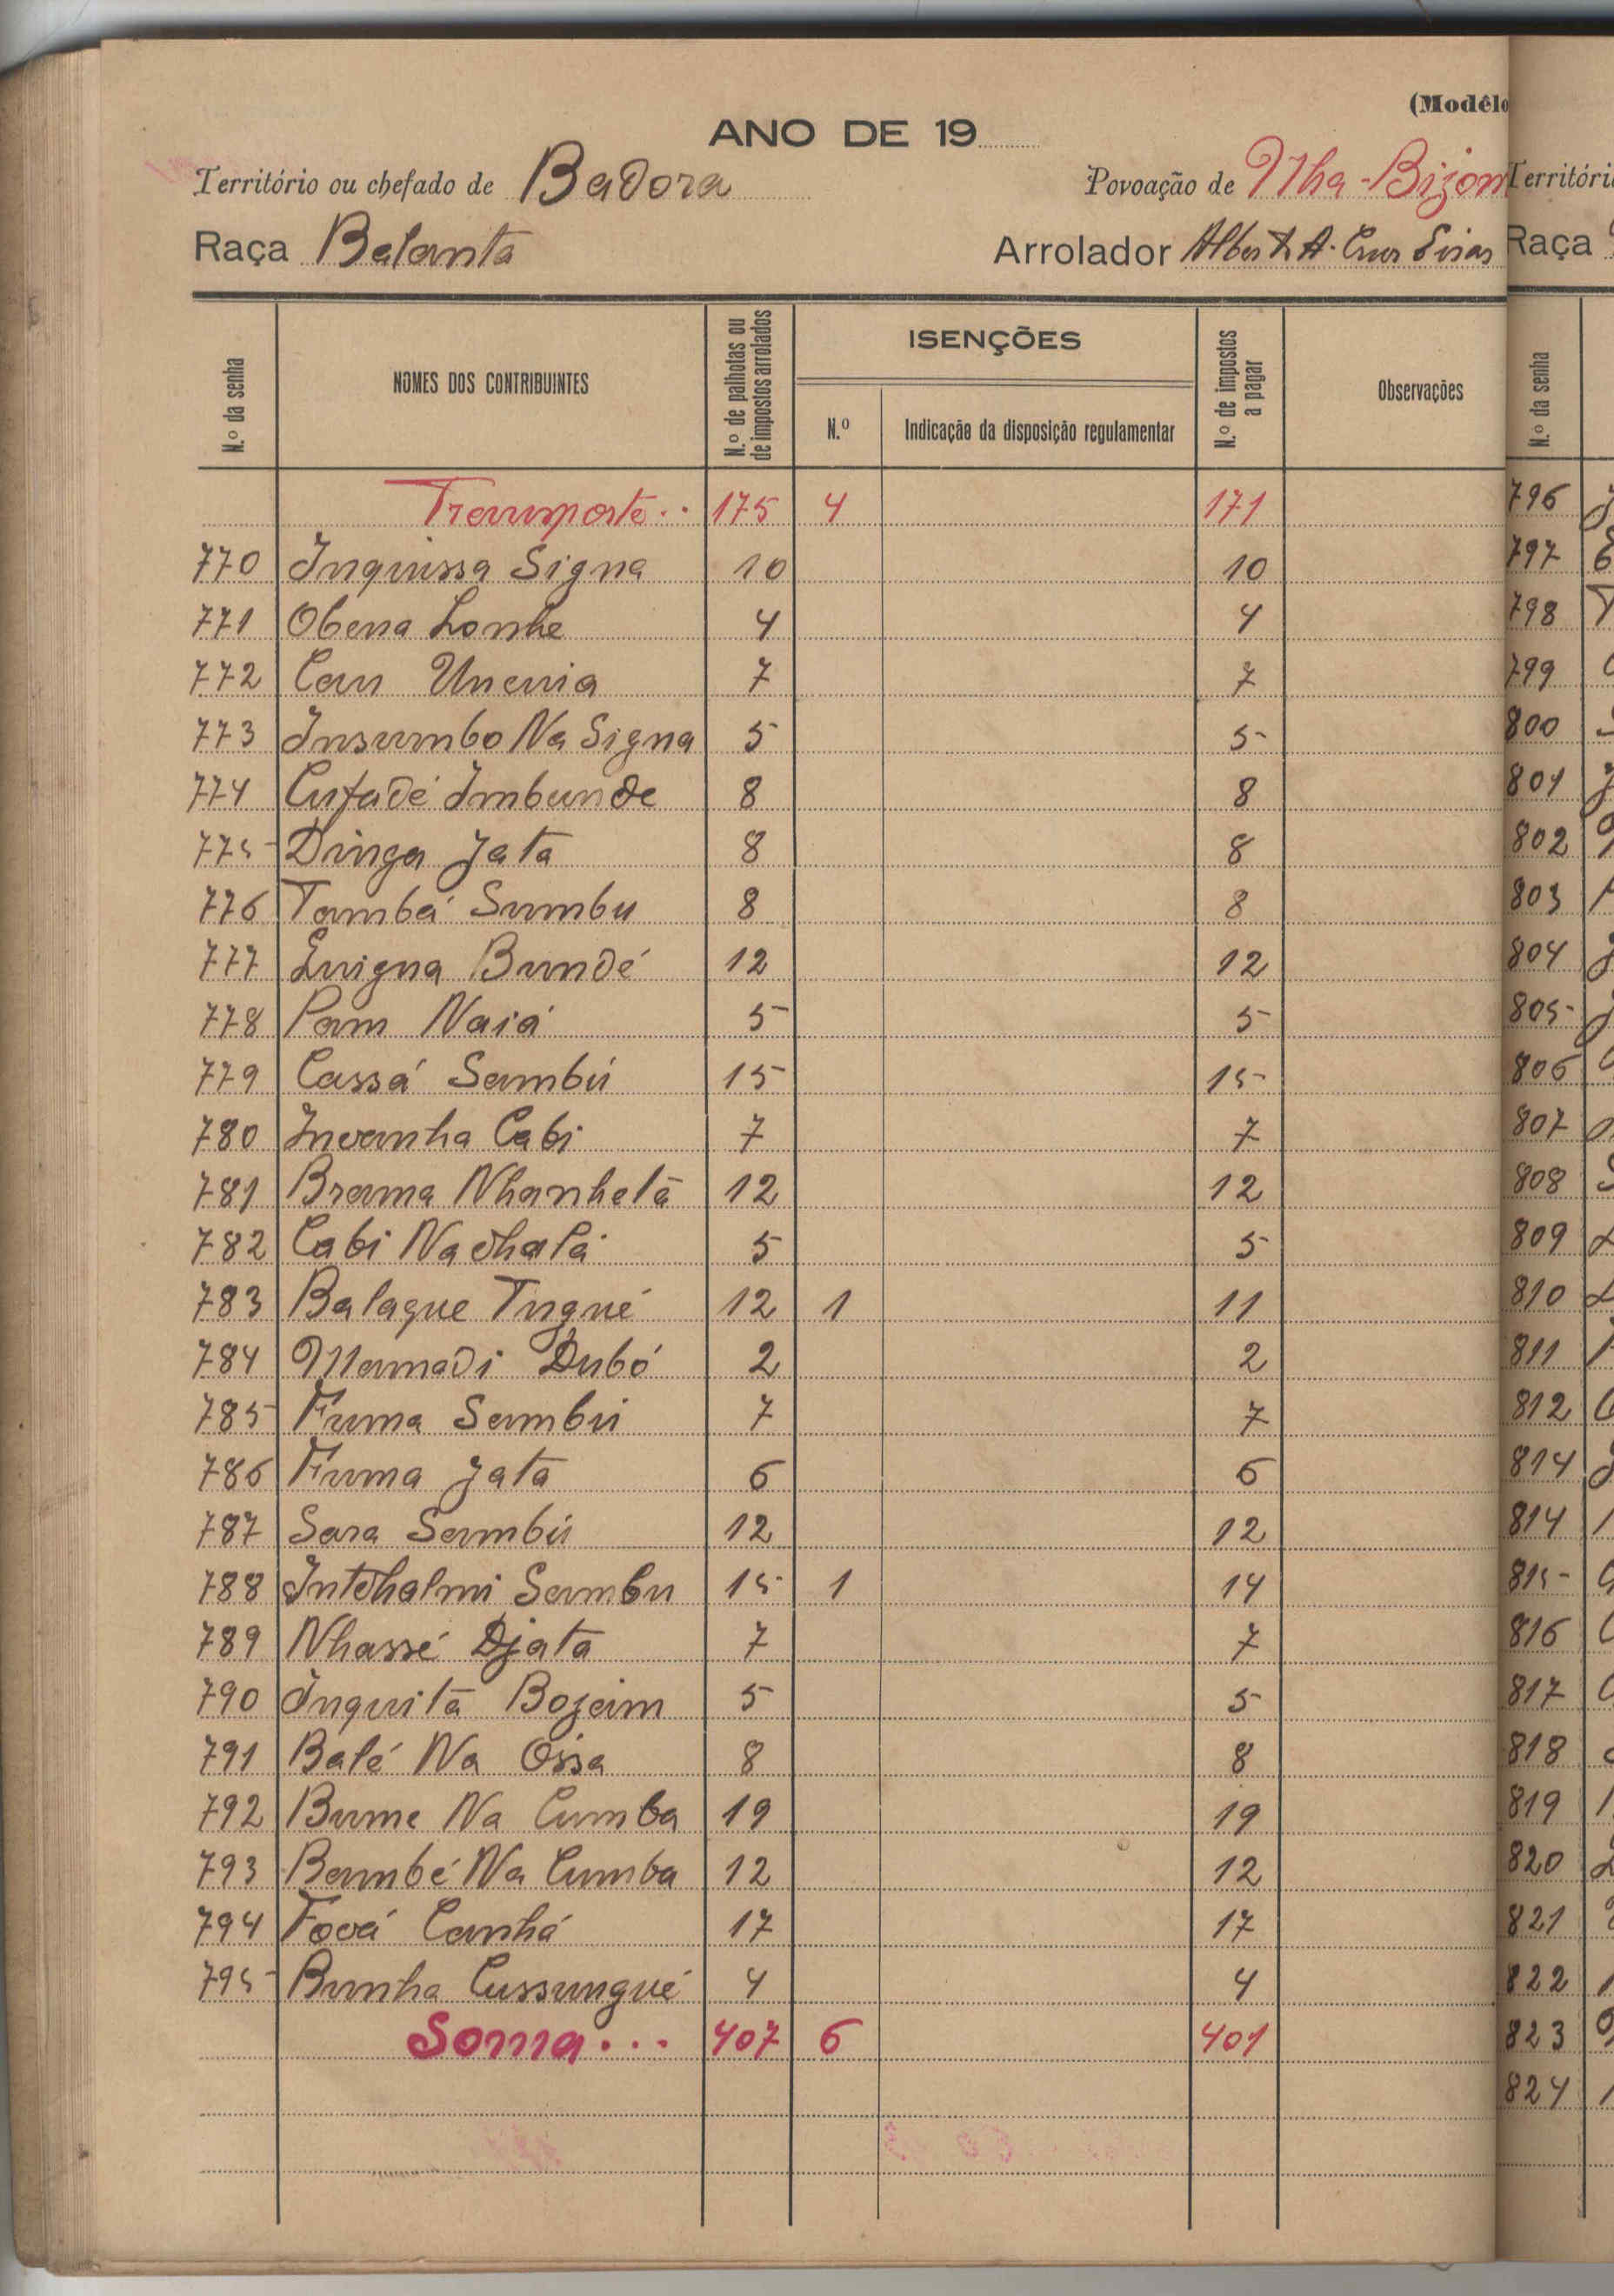 (Modêlo
ANO DE 19
Território ou chefado de Badora Povoação de Nha-Bijom
Raça Balanta Arrolador A. Cruz
N.º da senha NOMES DOS CONTRIBUINTES N.º de palhotas ou de impostos arrolados ISENÇÕES N.º Indicação da disposição regulamentar N.º de impostos a pagar Observações
Transporte.. 175 4 171
770 Inquissa Signa 10 10
771 Obena Lonhe 4 4
772 Can Unenia 7 7
773 Insumbo Na Signa 5 5
774 Cufadé Imbunde 8 8
775 Dinga Jata 8 8
776 Tambá Sumbu 8 8
777 Bundé 12 12
778 Pam Naiá 5 5
779 Cassá Sambú 15 15
780 Invanha Cabi 7 7
781 Brama Nhanhetã 12 12
782 Cabi 5 5
783 Balaque Tugué 12 1 11
784 Mamadi Dubó 2 2
785 Fuma Sambú 7 7
786 Fuma Jata 6 6
787 Sara Sambú 12 12
788 Intchalmi Sambu 15 1 14
789 Nhassé Djata 7 7
790 Inquitã Bojam 5 5
791 Balé Na Ossa 8 8
792 Bume Na Cumba 19 19
793 Bambé Na Cumba 12 12
794 Fová Canhá 17 17
795 Bunha Cussungué 4 4
Soma... 407 6 401
Territóri
Raça
N.º da senha
796
797
798
799
800
801
802
803
804
805
806
807
808
809
810
811
812
814
814
815
816
817
818
819
820
821
822
823
824